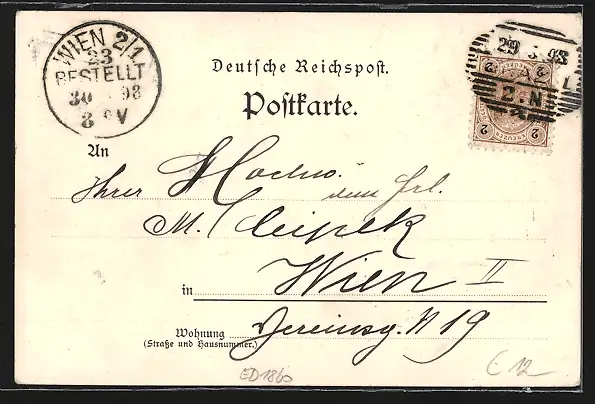 WIEN 2/1
23
BESTELLT
30 98
8 V
Deutsche Reichspost.
Postkarte.
29 5 98
2. N
2 2
An
Ihrer
dem Frl.
M.
in Wien II
Wohnung Vereinsg. N 19
(Straße und Hausnummer.)
ED1860
€ 12